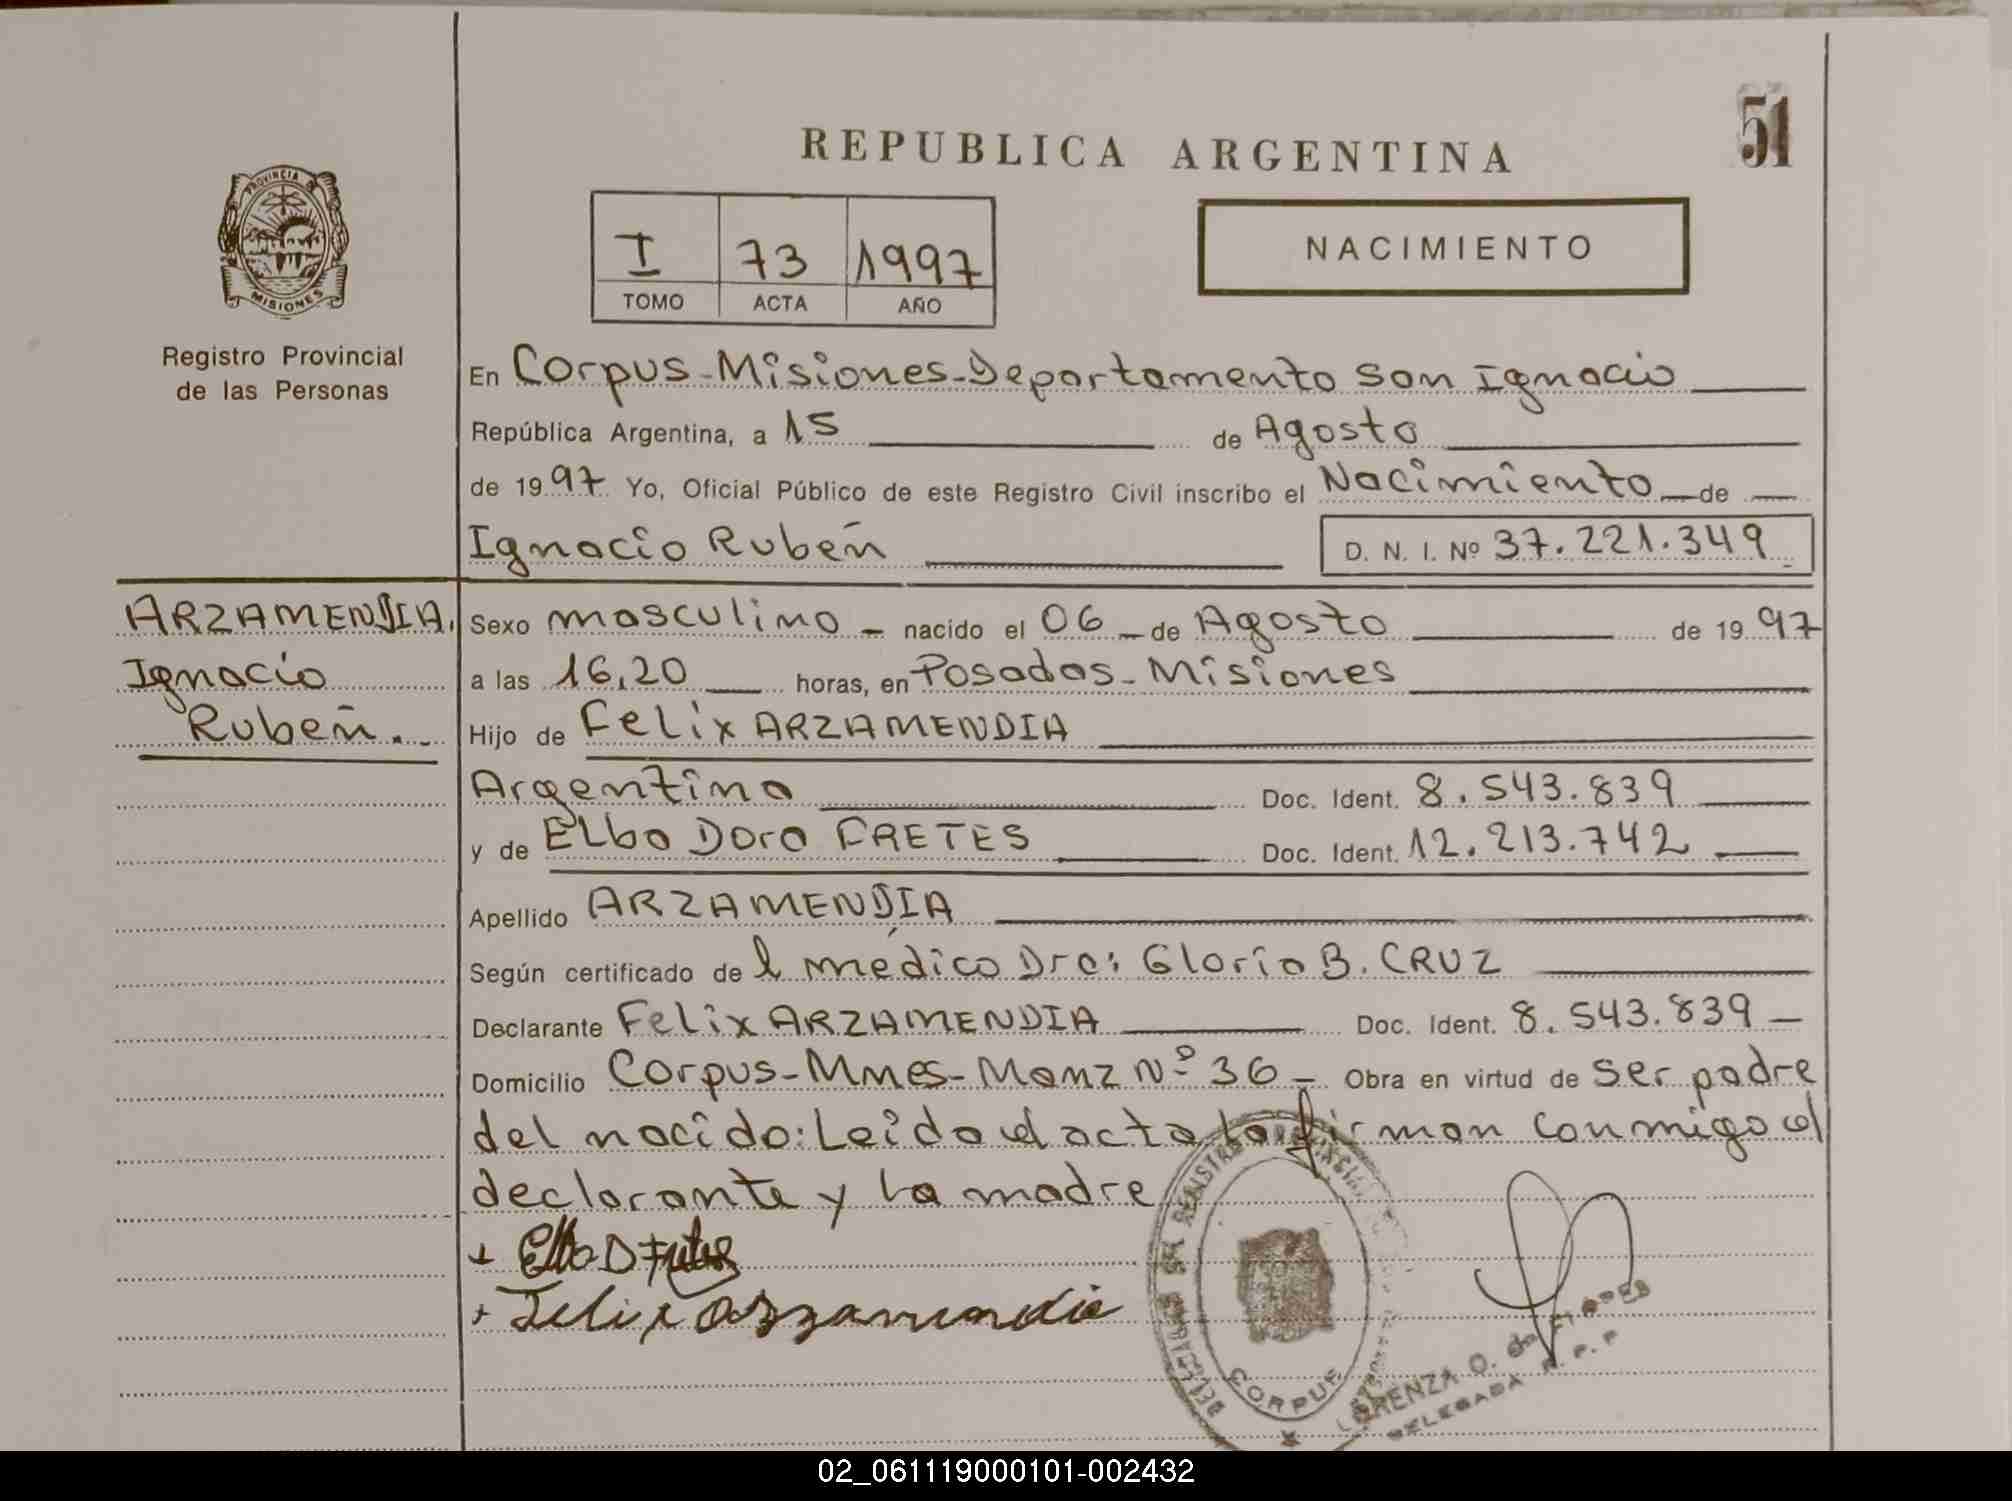 51
REPUBLICA ARGENTINA
PROVINCIA DE
MISIONES
Registro Provincial
de las Personas
I 73 1997
TOMO ACTA AÑO
NACIMIENTO
En Corpus-Misiones-Departamento San Ignacio
República Argentina, a 15 de Agosto
de 1997 Yo, Oficial Público de este Registro Civil inscribo el Nacimiento de
Ignacio Rubén D. N. I. Nº 37.221.349
ARZAMENDIA.
Ignacio
Rubén.
Sexo masculino - nacido el 06 - de Agosto de 1997
a las 16,20 horas, en Posadas-Misiones
Hijo de Felix ARZAMENDIA
Argentino Doc. Ident. 8.543.839
y de Elba Dora FRETES Doc. Ident. 12.213.742
Apellido ARZAMENDIA
Según certificado de l médico Dra: Gloria B. CRUZ
Declarante Felix ARZAMENDIA Doc. Ident. 8.543.839
Domicilio Corpus-Mnes-Manz Nº 36 - Obra en virtud de ser padre
del nacido: Leido el acta la firman conmigo el
declarante y la madre
+ Elba D Fretes
+ Felix Arzamendia
CORPUS
LORENZA O. de FLORES
DELEGADA R. P. P
02_061119000101-002432